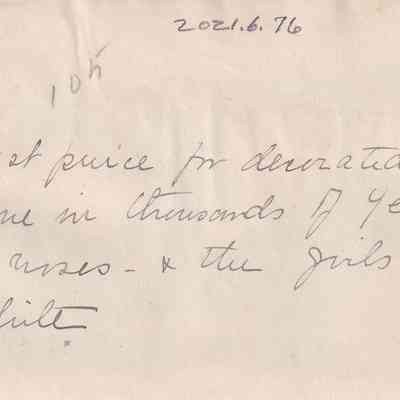 2021.6.76
10 h
st price for decorated
ne in thousands of Ye
roses - & the girls
hite